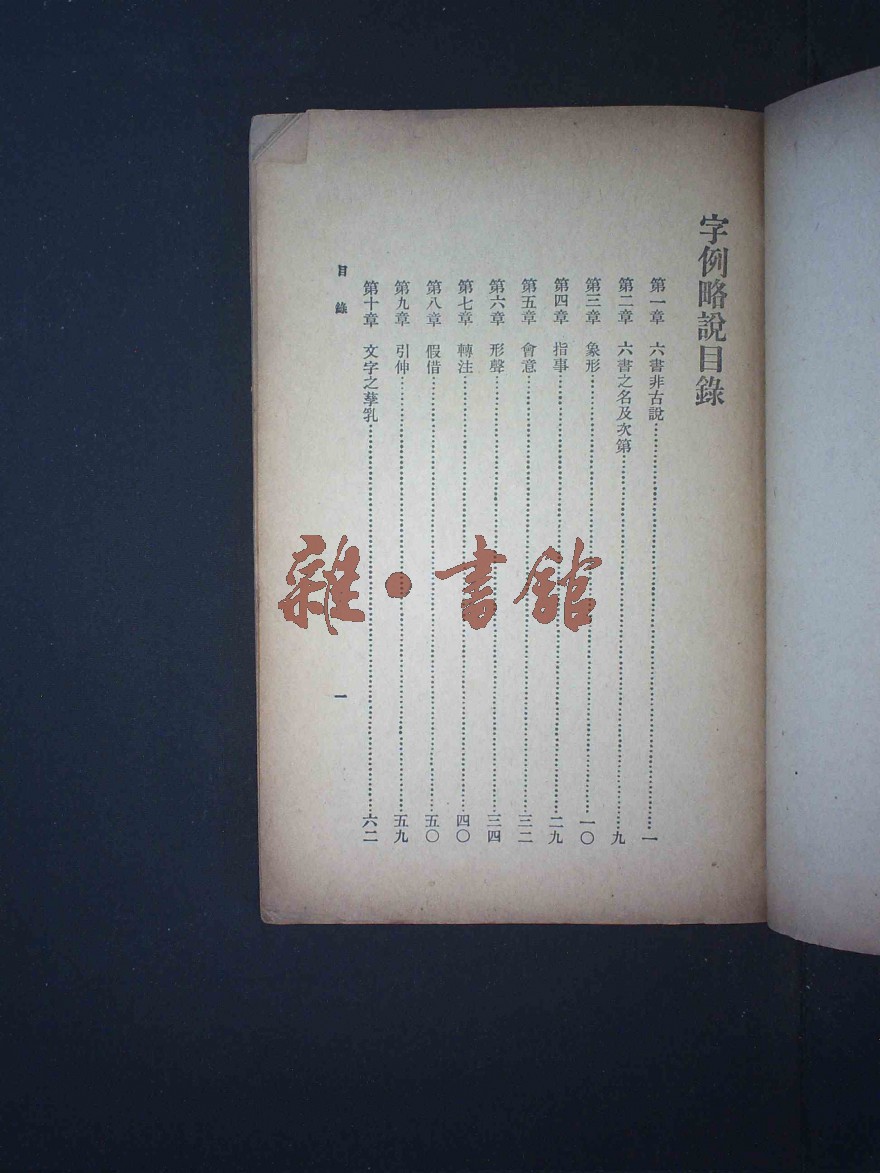 字例略說目錄
第一章　六書非古說……一
第二章　六書之名及次第……九
第三章　象形……一〇
第四章　指事……二九
第五章　會意……三二
第六章　形聲……三四
第七章　轉注……四〇
第八章　假借……五〇
第九章　引伸……五九
第十章　文字之孳乳……六二
目錄
一
雜·書館